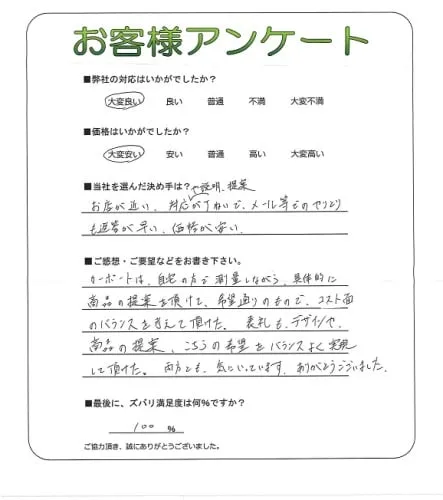 お客様アンケート
■弊社の対応はいかがでしたか?
大変良い 良い 普通 不満 大変不満
■価格はいかがでしたか?
大変安い 安い 普通 高い 大変高い
■当社を選んだ決め手は?
や説明、提案
お店が近い、対応がていねいで、メール等でのやりとり
も返答が早い、価格が安い、
■ご感想・ご要望などをお書き下さい。
カーポートは、自宅の方で測量しながら、具体的に
商品の提案を頂けて、希望通りのもので、コスト面
のバランスを考えて頂けた。表札も、デザインや、
商品の提案、こちらの希望をバランスよく実現
して頂けた。両方とも、気にいっています。ありがとうございました。
■最後に、ズバリ満足度は何%ですか?
100 %
ご協力頂き、誠にありがとうございました。